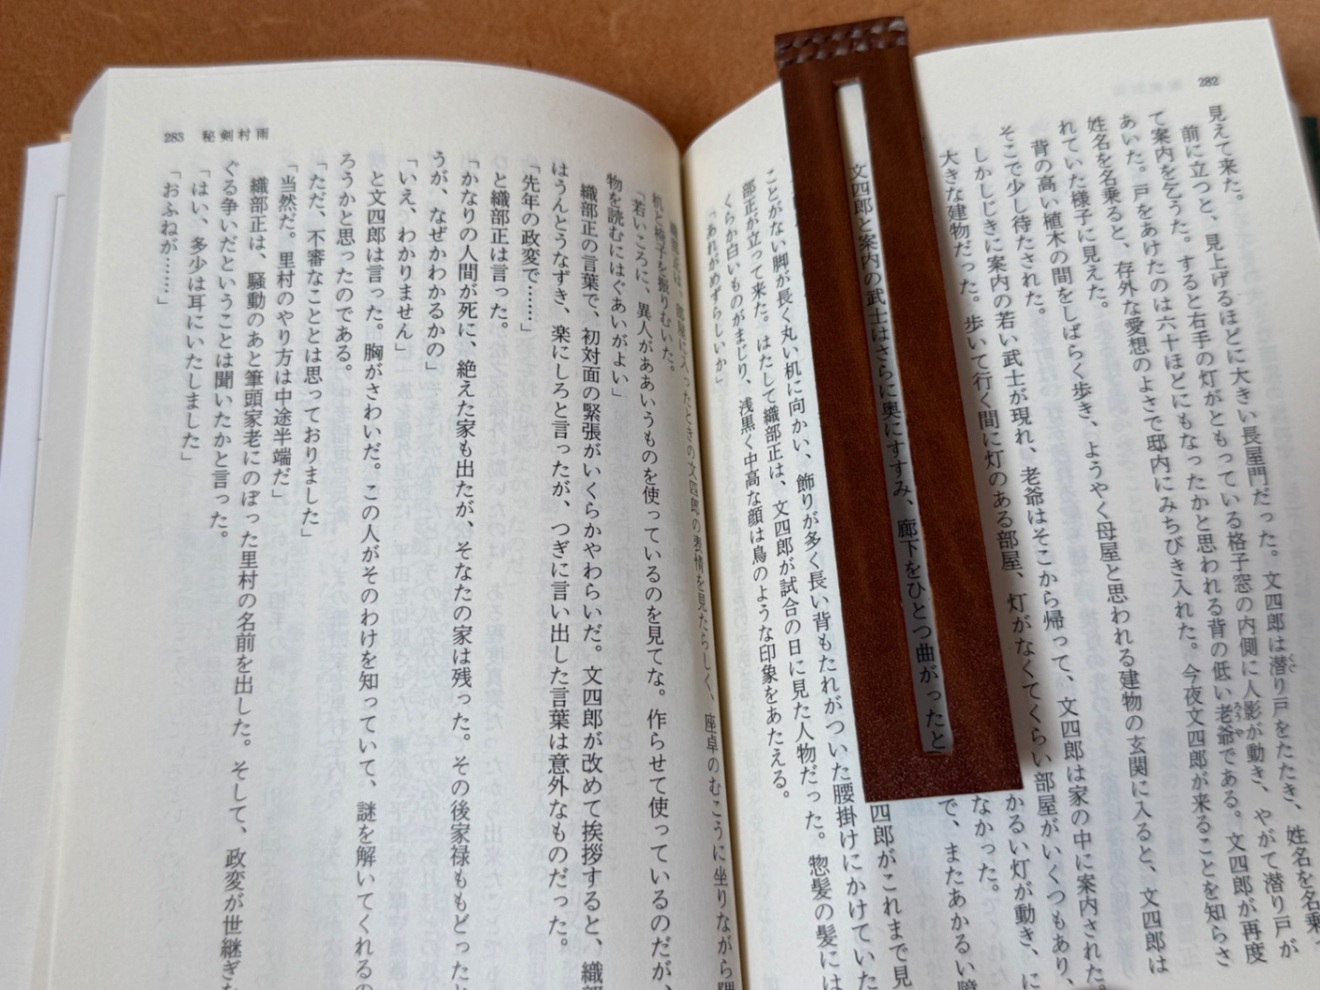 282
見えて来た。
前に立つと、見上げるほどに大きい長屋門だった。文四郎は潜り戸をたたき、姓名を名乗っ
て案内を乞うた。すると右手の灯がともっている格子窓の内側に人影が動き、やがて潜り戸が
あいた。戸をあけたのは六十ほどにもなったかと思われる背の低い老爺である。文四郎が再度
姓名を名乗ると、存外な愛想のよさで邸内にみちびき入れた。今夜文四郎が来ることを知らさ
れていた様子に見えた。
背の高い植木の間をしばらく歩き、ようやく母屋と思われる建物の玄関に入ると、文四郎は
そこで少し待たされた。
しかしじきに案内の若い武士が現れ、老爺はそこから帰って、文四郎は家の中に案内された。
大きな建物だった。歩いて行く間に灯のある部屋、灯がなくてくらい部屋がいくつもあり、
かるい灯が動き、に
なかった。
文四郎と案内の武士はさらに奥にすすみ、廊下をひとつ曲がったと
で、またあかるい
四郎がこれまで見
ことがない脚が長く丸い机に向かい、飾りが多く長い背もたれがついた腰掛けにかけていた
部正が立って来た。はたして織部正は、文四郎が試合の日に見た人物だった。惣髪の髪には
くらか白いものがまじり、浅黒く中高な顔は鳥のような印象をあたえる。
「あれがめずらしいか」
部屋に入ったときの文四郎の表情を見たらしく、座卓のむこうに坐りながら
283 秘剣村雨
机と椅子を振りむいた。
「若いころに、異人がああいうものを使っているのを見てな。作らせて使っているのだが、
物を読むにはぐあいがよい」
織部正の言葉で、初対面の緊張がいくらかやわらいだ。文四郎が改めて挨拶すると、織
はうんとうなずき、楽にしろと言ったが、つぎに言い出した言葉は意外なものだった。
「先年の政変で……」
と織部正は言った。
「かなりの人間が死に、絶えた家も出たが、そなたの家は残った。その後家禄ももどったと
うが、なぜかわかるかの」
「いえ、わかりません」
と文四郎は言った。胸がさわいだ。この人がそのわけを知っていて、謎を解いてくれるの
ろうかと思ったのである。
「ただ、不審なこととは思っておりました」
「当然だ。里村のやり方は中途半端だ」
織部正は、騒動のあと筆頭家老にのぼった里村の名前を出した。そして、政変が世継ぎを
ぐる争いだということは聞いたかと言った。
「はい、多少は耳にいたしました」
「おふねが……」